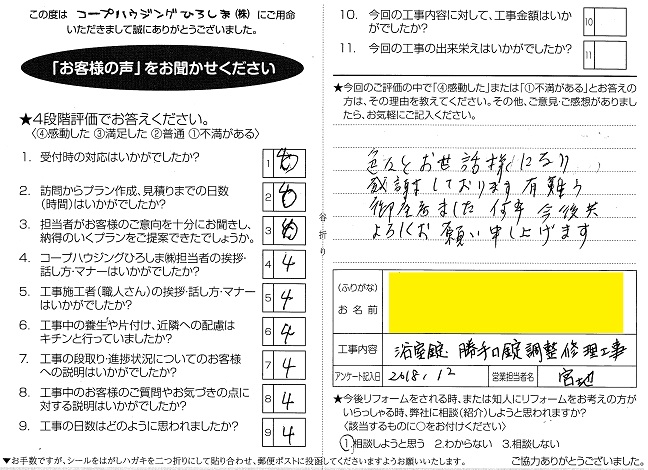 この度は コープハウジングひろしま(株) にご用命
いただきまして誠にありがとうございました。
「お客様の声」をお聞かせください
★4段階評価でお答えください。
〈④感動した ③満足した ②普通 ①不満がある〉
1. 受付時の対応はいかがでしたか? 1
2. 訪問からプラン作成、見積りまでの日数
(時間)はいかがでしたか? 2
3. 担当者がお客様のご意向を十分にお聞きし、
納得のいくプランをご提案できたでしょうか。 3
4. コープハウジングひろしま㈱担当者の挨拶・
話し方・マナーはいかがでしたか? 4 4
5. 工事施工者(職人さん)の挨拶・話し方・マナー
はいかがでしたか? 5 4
6. 工事中の養生や片付け、近隣への配慮は
キチンと行っていましたか? 6 4
7. 工事の段取り・進捗状況についてのお客様
への説明はいかがでしたか? 7 4
8. 工事中のお客様のご質問やお気づきの点に
対する説明はいかがでしたか? 8 4
9. 工事の日数はどのように思われましたか? 9 4
▼お手数ですが、シールをはがしハガキを二つ折りにして貼り合わせ、郵便ポストに投函してくださいますようお願いいたします。
谷折り
10. 今回の工事内容に対して、工事金額はいか
がでしたか? 10
11. 今回の工事の出来栄えはいかがでしたか? 11
★今回のご評価の中で「④感動した」または「①不満がある」とお答えの
方は、その理由を教えてください。その他、ご意見・ご感想がありまし
たら、お気軽にご記入ください。
色々とお世話様になり
感謝しております 有難う
御座居ました 何卒 今後共
よろしくお願い申し上げます
(ふりがな)
お名前
工事内容 浴室錠 勝手口錠調整修理工事
アンケート記入日 2018.12 営業担当者名 宮地
★今後リフォームをされる時、または知人にリフォームをお考えの方が
いらっしゃる時、弊社に相談(紹介)しようと思われますか?
〈該当するものに○をお付けください〉
①相談しようと思う 2.わからない 3.相談しない
ご協力ありがとうございました。